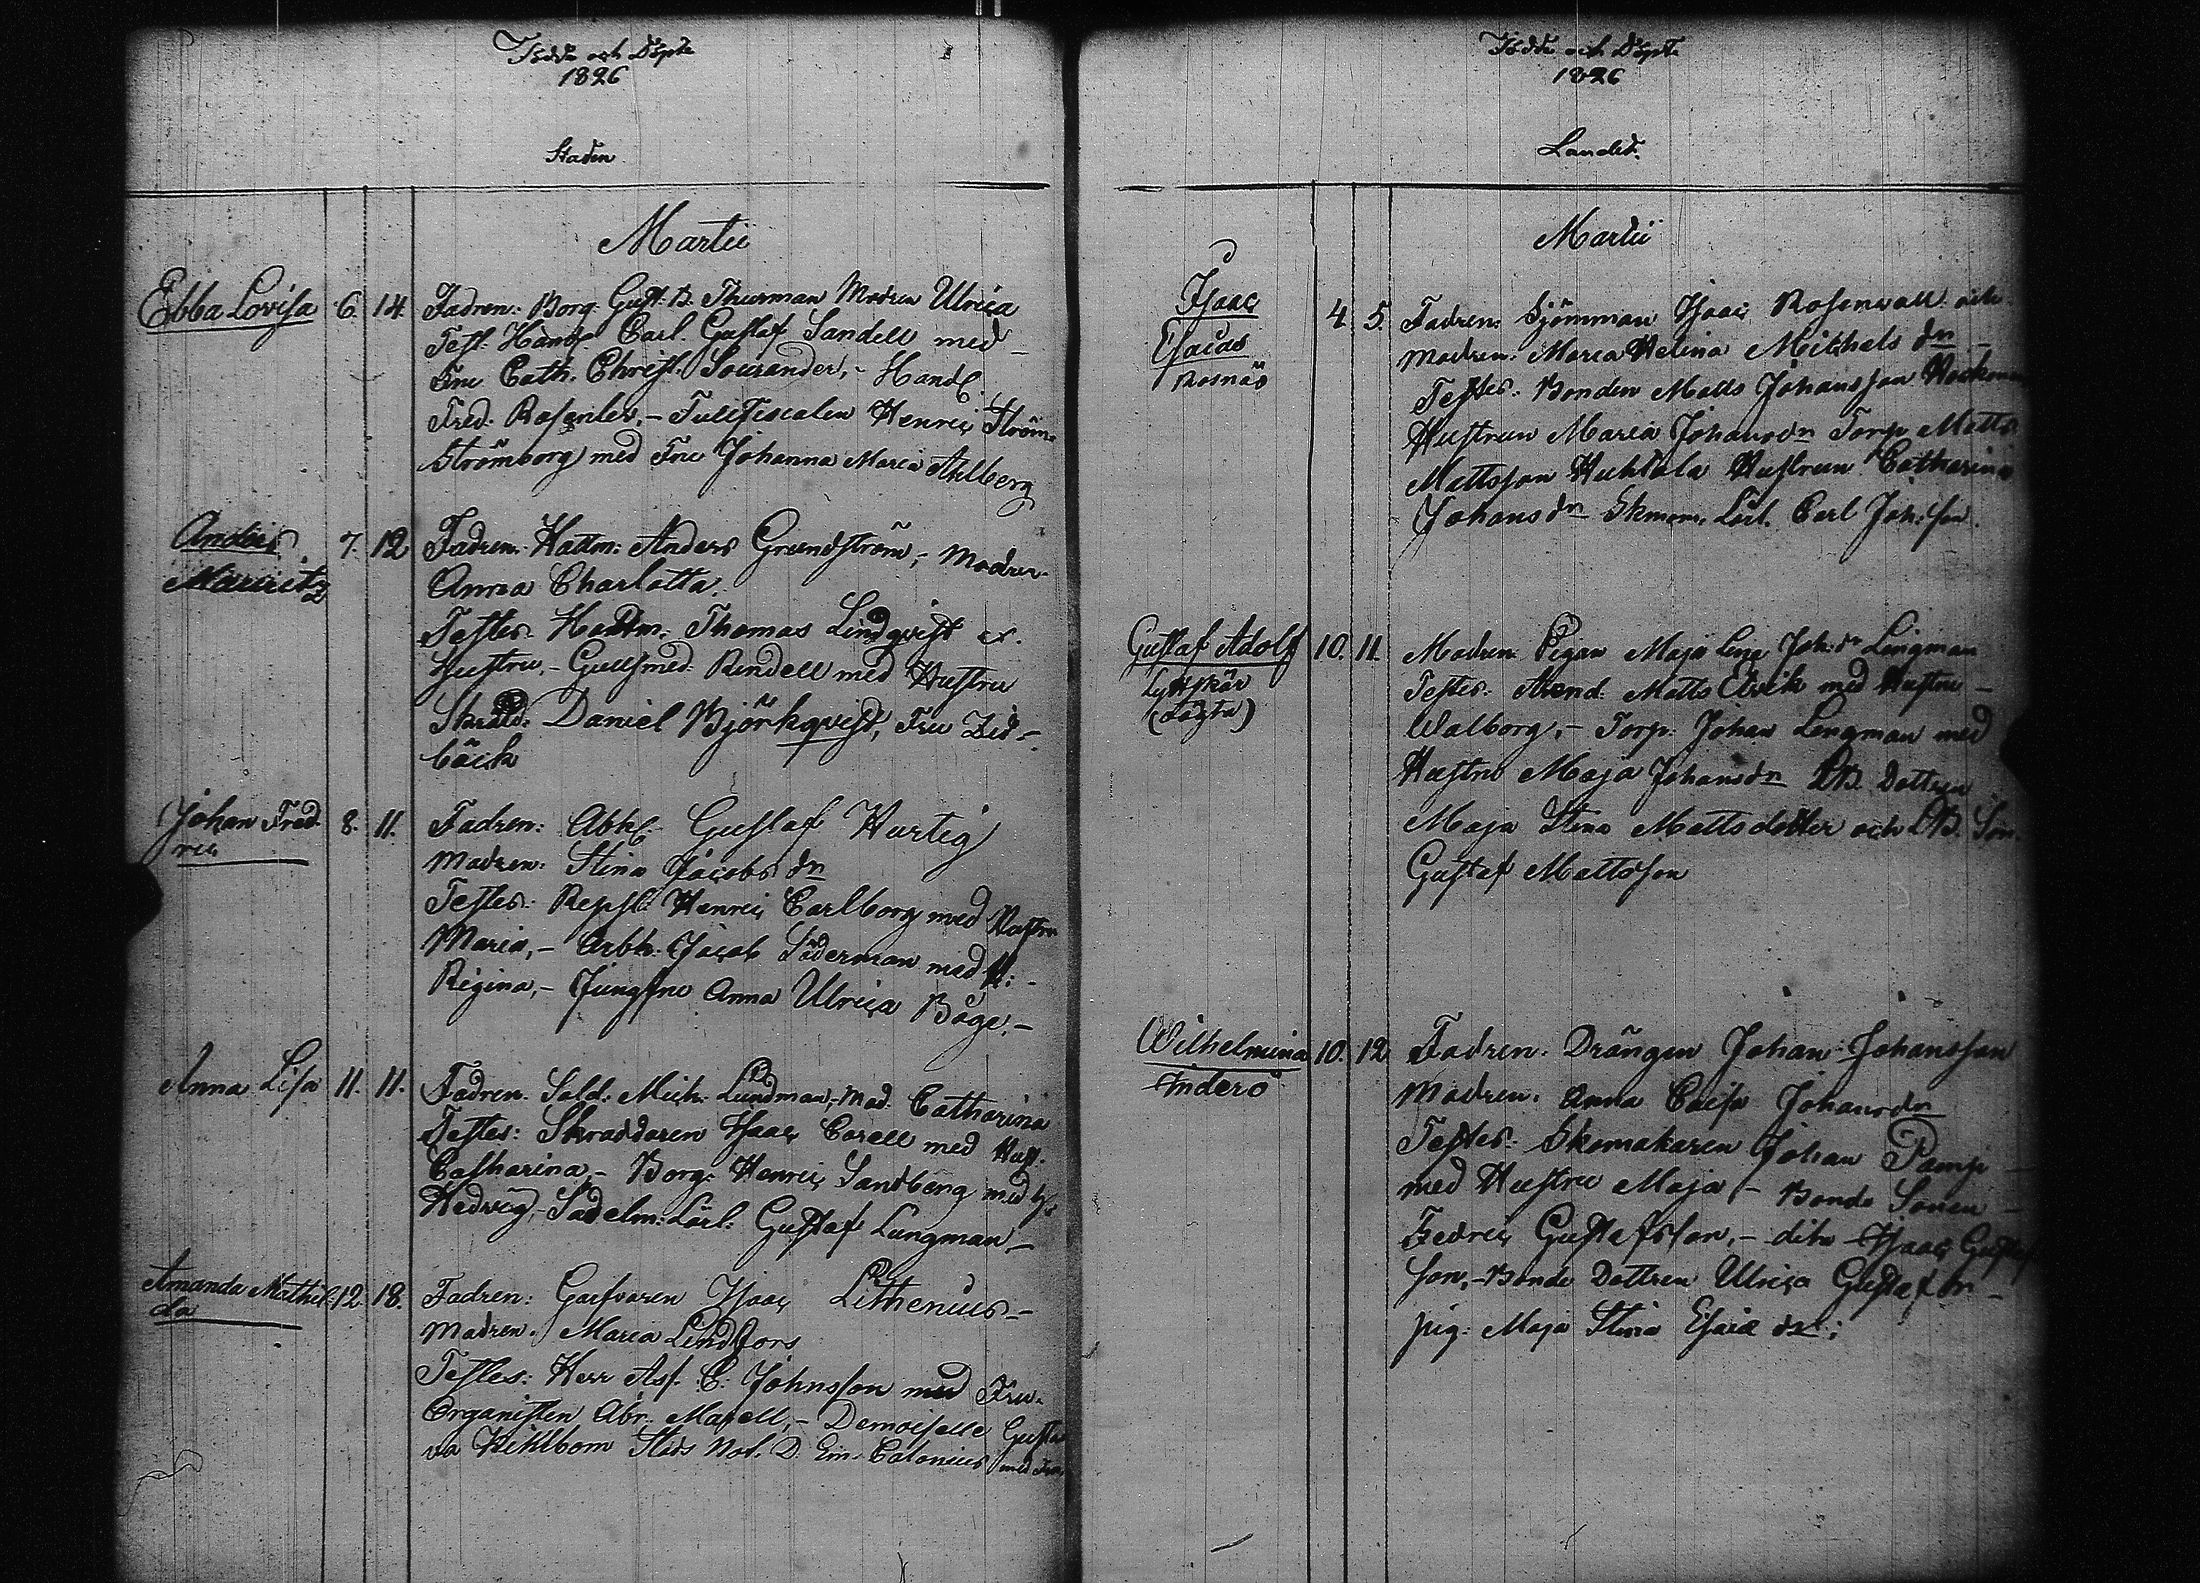 Födde och Döpte
1826
Staden
Martii
Ebba Lovisa 6. 14. Fadren: Borg. Gust. B. Thurman Modren Ulrica
Test. Handl. Carl Gustaf Sandell med
Fru Cath. Christ. Sourander, - Handl.
Fred. Rosenler, - Tullfiscalen Henric Ström-
Strömborg med Fru Johanna Maria Ahlberg
Anders 7. 12 Fadren. Hattm: Anders Grundström, - Modren
Mauritz Anna Charlotta.
Testes. Hattm: Thomas Lindqvist
Hustru, - Gullsmed. Rindell med Hustru
Skrädd: Daniel Björkqvist, Fru Zid-
bäck
Johan Fred- 8. 11. Fadren: Abk: Gustaf Hurtig
ric Modren: Stina Jacobs dn
Testes: Repsl: Henric Carlborg med Hustru
Maria, - Arbk. Jacob Söderman med H: -
Regina, - Jungfru Anna Ulrica Böge, -
Anna Lisa 11. 11. Fadren. Sold: Mich: Lundman, - Mod. Catharina
Testes: Skraddaren Isaac Corell med Hust.
Catharina, - Borg: Henric Sandberg med H:
Hedvig, - Sadelm: Lärl: Gustaf Lungman, -
Amanda Mathil- 12. 18. Fadren: Garfvaren Isaac Lithenius -
da Modren. Maria Lindfors
Testes: Herr Asf. C: Johnsson med Fru.
Organisten Abr. Masell, - Demoiselle Gusta
va Kihlbom Stads Not. D. Em. Calonius med Fru
Födde och Döpte
1826
Landet.
Martii
Isaac 4. 5. Fadren: Sjömman Isaac Rosenwall och
Esaias Modren: Maria Helina Michels dn -
Rosnäs Testes. Bonden Matts Johansson
Hustrun Maria Johansdn Torp. Matts
Mattsson Huhtala Hustrun Catharina
Johansdn Skmom. Lärl. Carl Joh:son.
Gustaf Adolf 10. 11. Modren: Pigan Maja Lisa Joh:dr Lingman
Lyttskär Testes: Arend. Matts Elvik med Hustru -
(Löyta) Walborg, - Torp. Johan Lengman med
Hustru Maja Johansdn LB. Dottren
Maja Stina Mattsdotter och LB. Son
Gustaf Mattsson
Wilhelmina 10. 12 Fadren: Drängen Johan Johansson
Inderö Modren. Anna Caisa Johansdn
Testes: Skomakaren Johan Pamp -
med Hustru Maja, - Bonde Sonen -
Fredric Gustafsson, - dito Isaac Gustaf
son, - Bonde Dottren Ulrica Gustaf dn -
pig: Maja Stina Esaiæ dr: